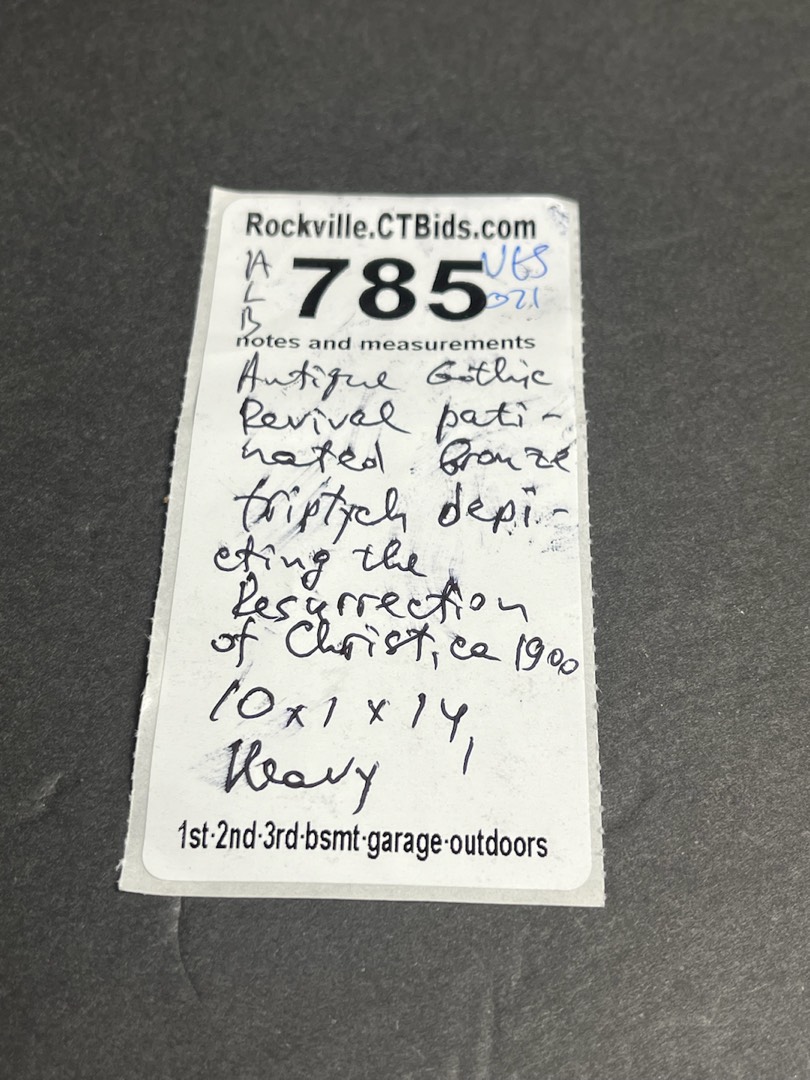 Rockville.CTBids.com
A
L
B
785
021
notes and measurements
Antique Gothic
Revival pati-
nated Bronze
triptych depi-
cting the
Resurrection
of Christ, ca 1900
10 x 1 x 14,
Heavy
1st·2nd·3rd·bsmt·garage·outdoors